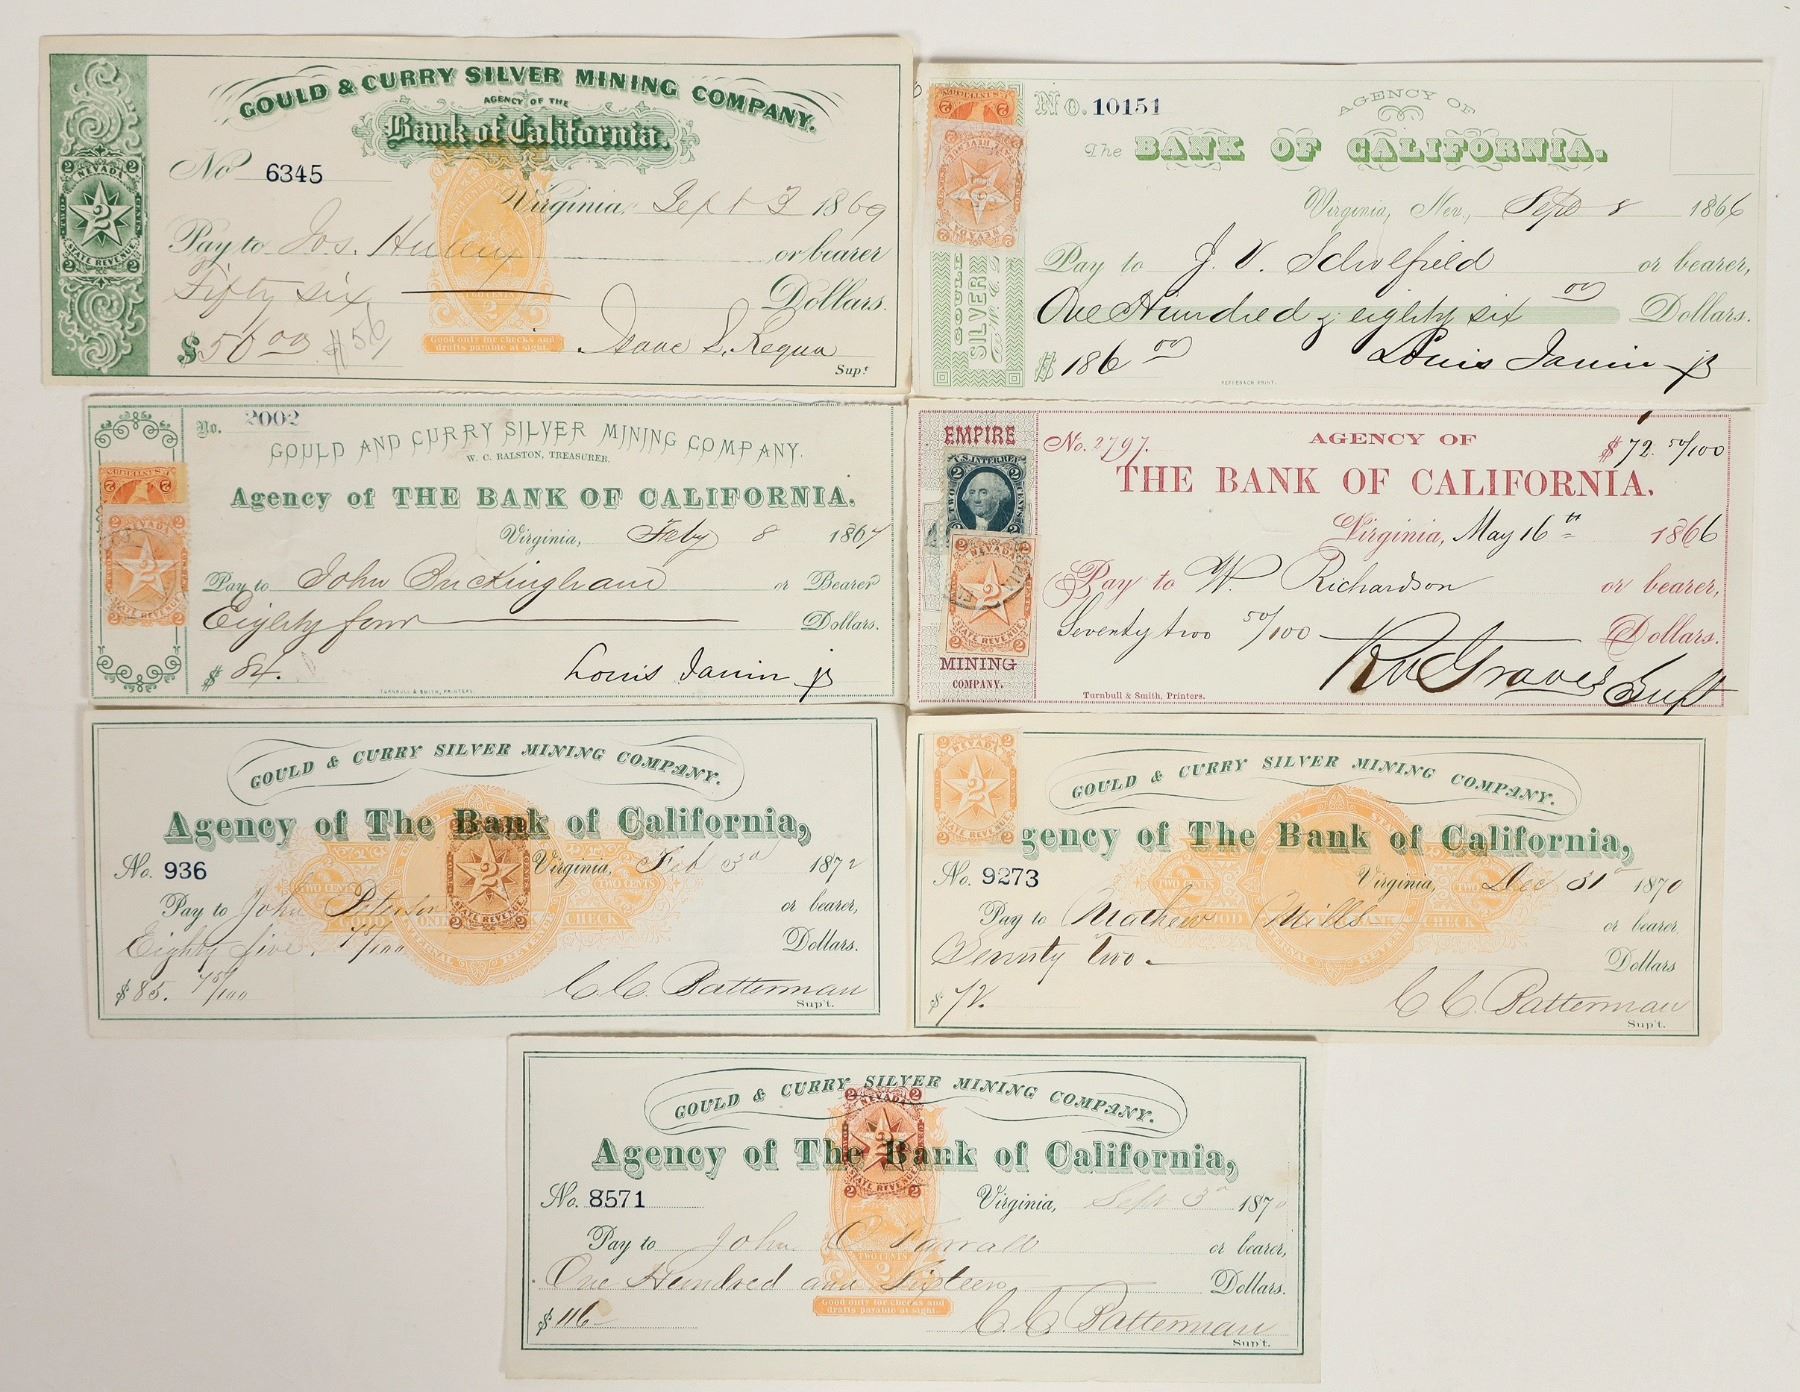 GOULD & CURRY SILVER MINING COMPANY.
AGENCY OF THE
Bank of California.
No 6345
Virginia, Sept 3 1869
Pay to Jos. or bearer
Fifty six Dollars.
$56 00 $56
Isaac L. Requa
Supt
2 NEVADA 2
TWO CENTS
2
STATE REVENUE
2 2
TWO CENTS
2
Good only for checks and
drafts payable at sight.
No. 10151
AGENCY OF
The BANK OF CALIFORNIA.
Virginia, Nev., Sept 8 1866
Pay to J. V. Scholfield or bearer,
One Hundred & eighty six 00 Dollars.
$186 00 Louis Janin jr
GOULD
SILVER
2 NEVADA 2
No. 2002
GOULD AND CURRY SILVER MINING COMPANY.
W. C. RALSTON, TREASURER.
Agency of THE BANK OF CALIFORNIA.
Virginia, Feby 8 1867
Pay to John Buckingham or Bearer
Eighty four Dollars.
$84. Louis Janin jr
TURNBULL & SMITH, PRINTERS.
2 NEVADA 2
2
EMPIRE
MINING
COMPANY.
U.S. INTER. REV.
TWO CENTS
2 NEVADA 2
2
STATE REVENUE
No. 2797. AGENCY OF $72. 50/100
THE BANK OF CALIFORNIA.
Virginia, May 16th 1866
Pay to W. Richardson or bearer,
Seventy two 50/100 Dollars.
Graves Supt
Turnbull & Smith, Printers.
GOULD & CURRY SILVER MINING COMPANY.
Agency of The Bank of California,
No. 936 Virginia, Feb 3d 1872
Pay to John or bearer,
Eighty five. 75/100 Dollars.
$85. 75/100 C. C. Batterman
Sup't.
2
STATE REVENUE
2 2
TWO CENTS TWO CENTS
GOOD CHECK
NEVADA
2
STATE REVENUE
GOULD & CURRY SILVER MINING COMPANY.
gency of The Bank of California,
No. 9273 Virginia, Dec 31st 1870
Pay to Mathew Mills or bearer
Seventy two Dollars
$72. C. C. Batterman
Sup't.
TWO CENTS TWO CENTS
GOOD BANK CHECK
GOULD & CURRY SILVER MINING COMPANY.
Agency of The Bank of California,
No. 8571 Virginia, Sept 3d 1870
Pay to John C Farrall or bearer,
One Hundred and Sixteen Dollars.
$116 C. C. Batterman
Sup't.
2 NEVADA 2
2
STATE REVENUE
2 2
TWO CENTS
2
Good only for checks and
drafts payable at sight.